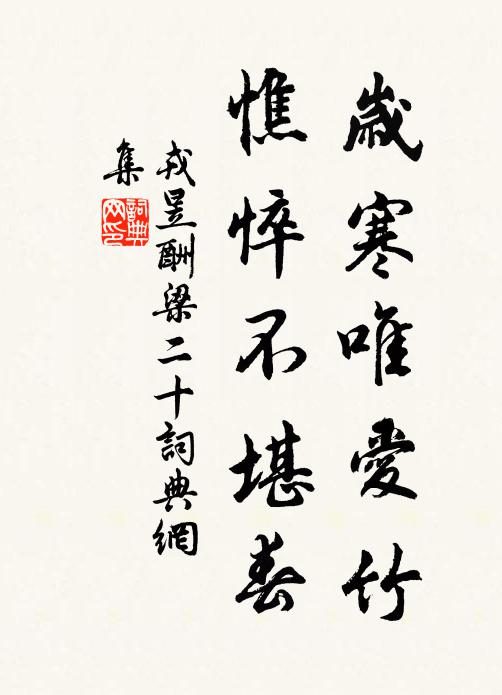 歲寒唯愛竹
憔悴不堪春
戎昱酬梁二十詞典網
集
詞典網印